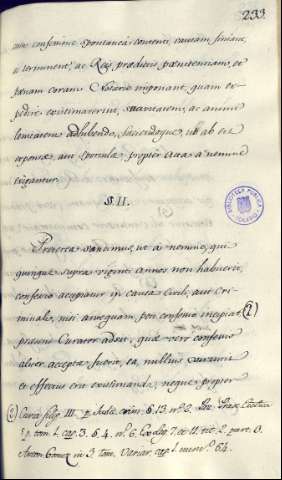 233
sua confessione spontanea contenti, causam finiant,
et terminent, ac Reis, productis, pœnitentiam, et
pœnam coram Notario imponant, quam ex-
pedire existimaverint, suavitatem, ac animi
lenitatem adhibendo, faciendoque, ut ab eis
expensæ, aut sportulæ propter ea a nemine
exigantur.
§. II.
Præterea sancimus, ut a nemine, qui
quinque supra viginti annos non habuerit,
confessio accipiatur in causa Civili, aut Cri-
minale, nisi antequam confessio incipiat (1)
præsens Curator adsit, quæ vero confessio
aliter accepta fuerit, ea nullius
et effectus erit existimanda, neque propter
Curia filip. III. p. §. 13. nº 2.
p. tom. 1. cap. 3. §. 4. nº 6. tit. 2. part. 0.
Anton Gomez in 3. tom. Variar. cap. 1. numº 64.
BIBLIOTECA PUBLICA
TOLEDO